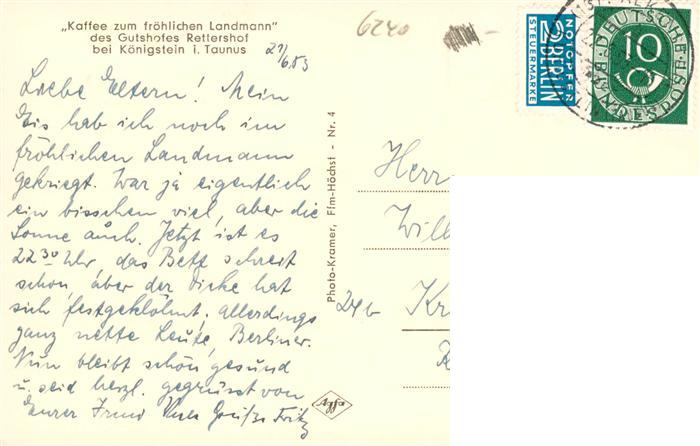 „Kaffee zum fröhlichen Landmann"
des Gutshofes Rettershof
bei Königstein i. Taunus
21/6.53
Liebe Eltern! Mein
Eis hab ich noch im
fröhlichen Landmann
gekriegt. War ja eigentlich
ein bisschen viel, aber die
Sonne auch. Jetzt ist es
22 30 Uhr, das Bett schreit
schon, aber der Dicke hat
sich festgeklöhnt. Allerdings
ganz nette Leute, Berliner.
Nun bleibt schön gesund
u. seid herzl. gegrüsst von
Eurer Irmi Grüße Fritz
6240
NOTOPFER
2 BERLIN
STEUERMARKE
DEUTSCHE
10
BUNDESPOST
Photo-Kramer, Ffm-Höchst - Nr. 4
Agfa
Herr
Will
Kr